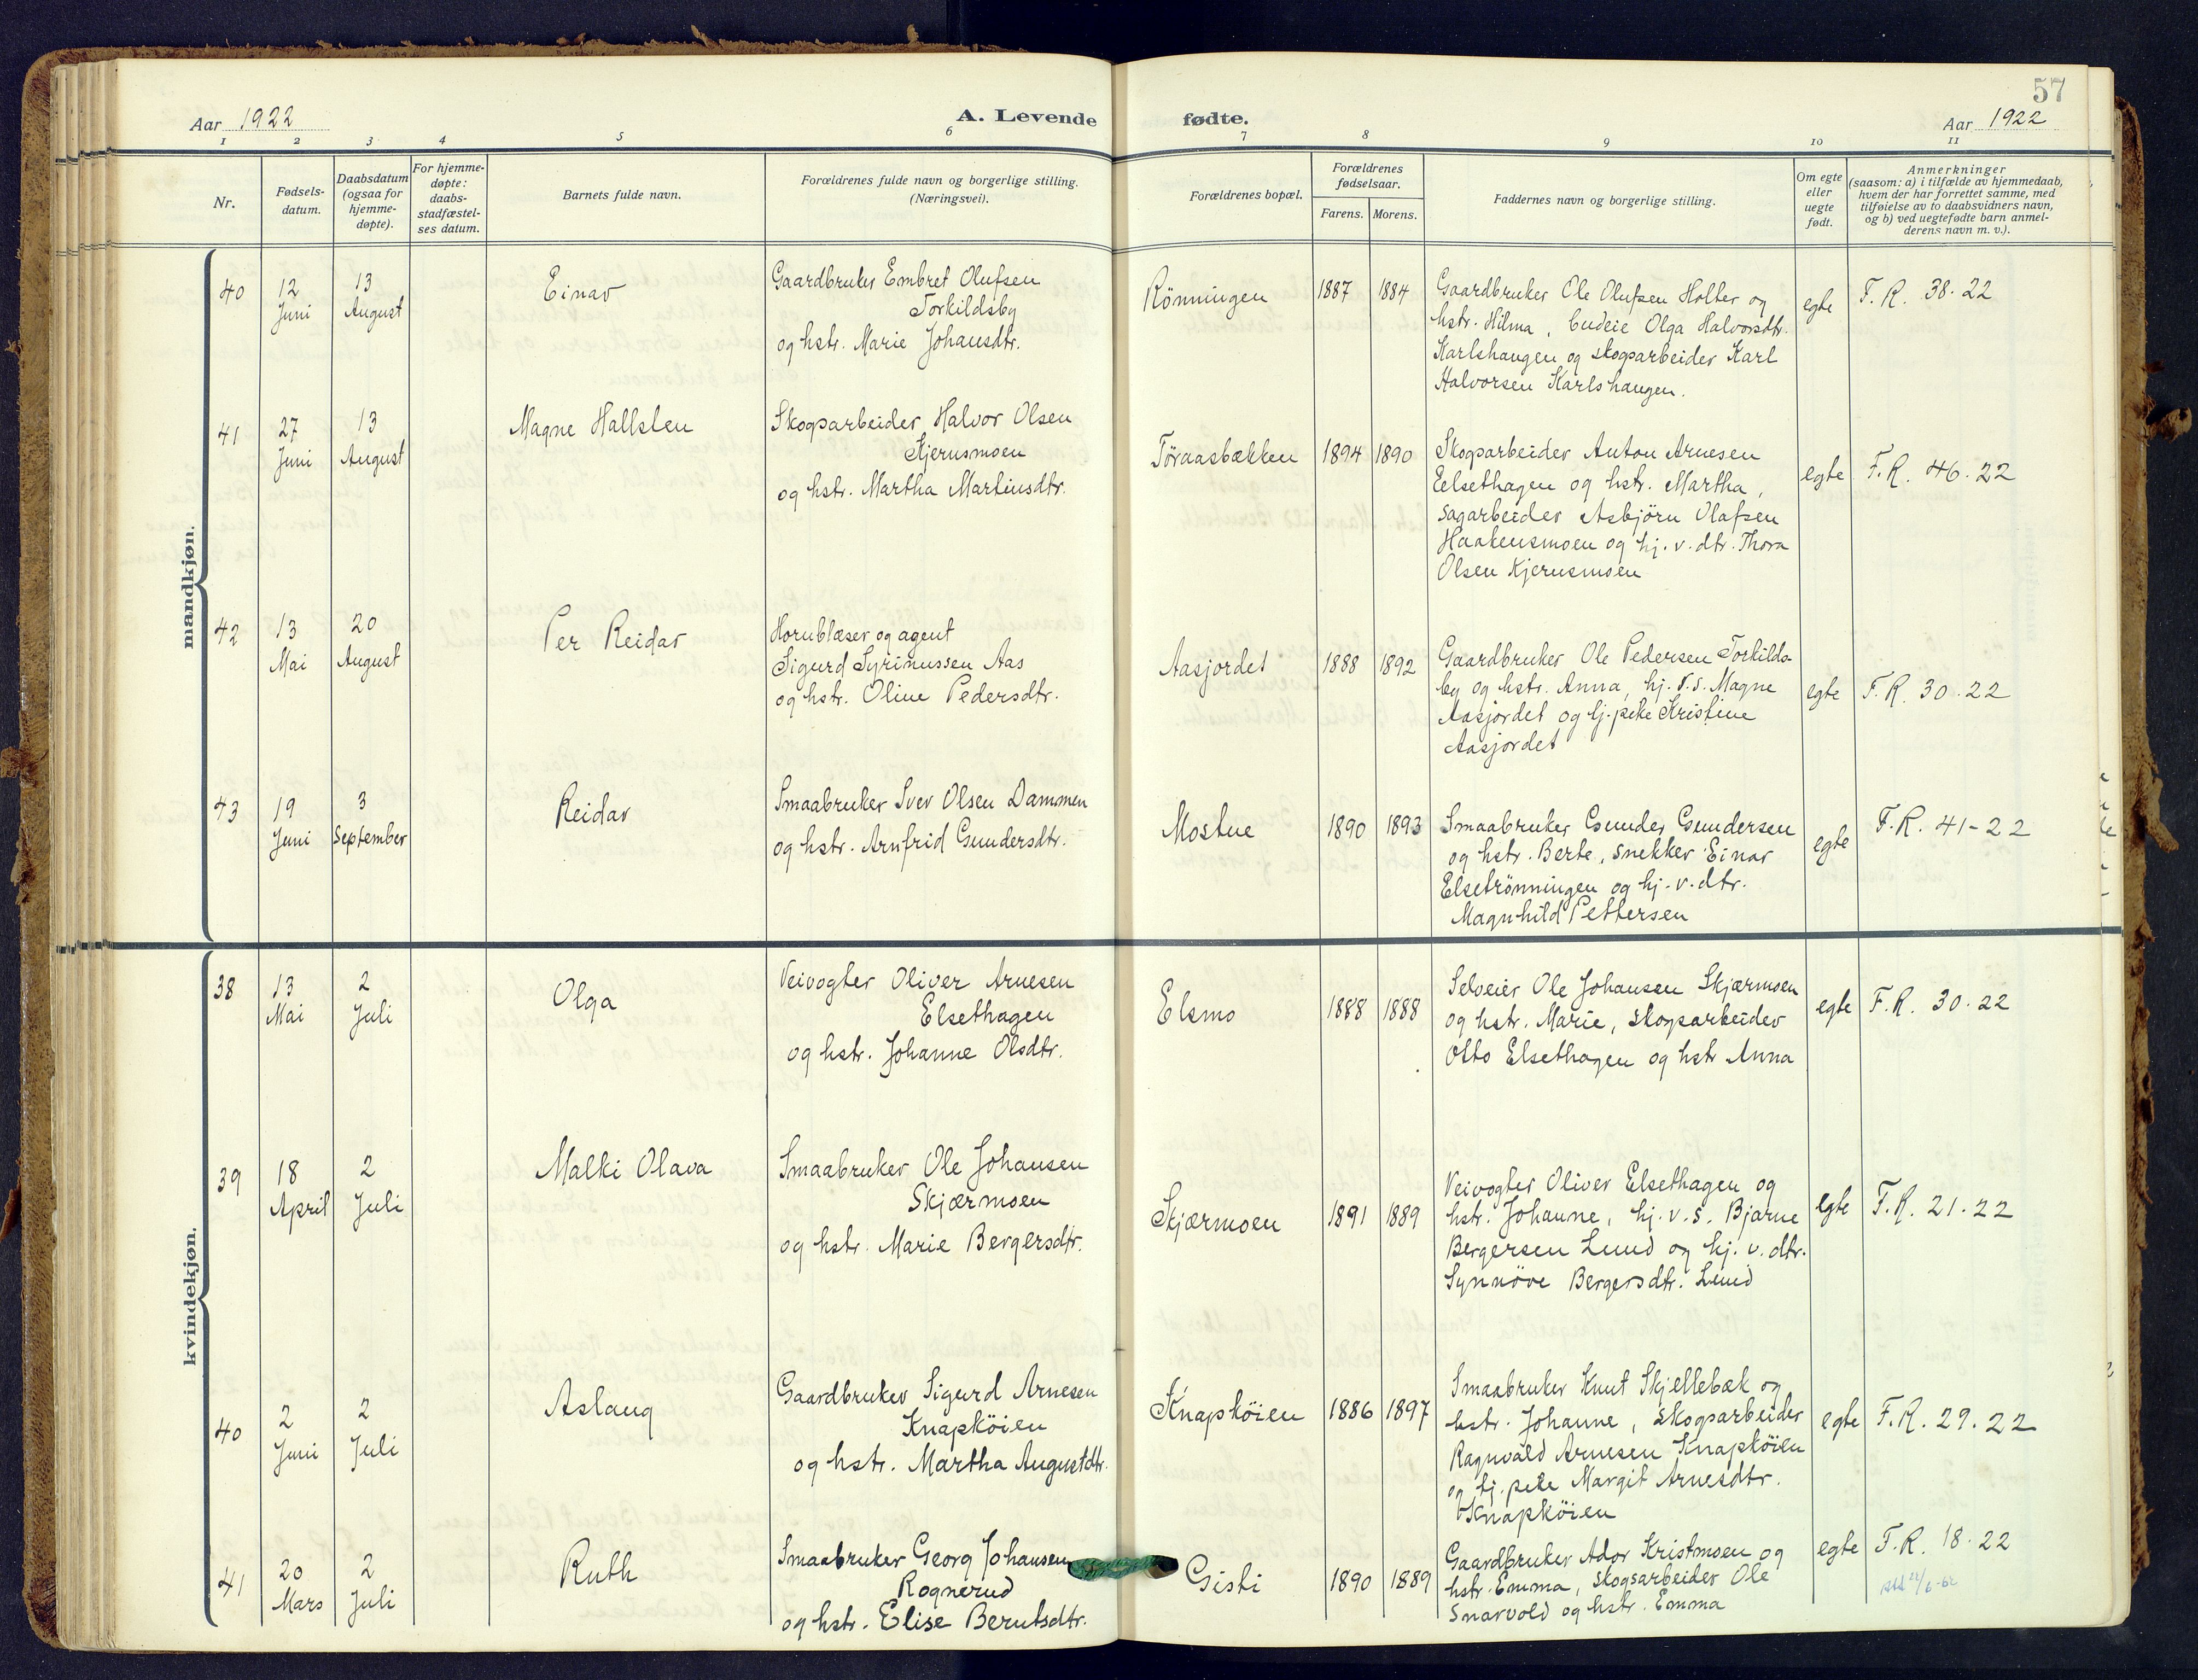 57
Aar 1922
A. Levende fødte.
Aar 1922
1 2 3 4 5 6 7 8 9 10 11
Nr.
Fødsels-
datum.
Daabsdatum
(ogsaa for
hjemme-
døpte).
For hjemme-
døpte:
daabs-
stadfæstel-
ses datum.
Barnets fulde navn.
Forældrenes fulde navn og borgerlige stilling.
(Næringsvei).
Forældrenes bopæl.
Forældrenes
fødselsaar.
Farens. Morens.
Faddernes navn og borgerlige stilling.
Om egte
eller
uegte
født.
Anmerkninger
(saasom: a) i tilfælde av hjemmedaab,
hvem der har forrettet samme, med
tilføielse av to daabsvidners navn,
og b) ved uegtefødte barn anmel-
derens navn m. v.).
mandkjøn.
40
12
Juni
13
August
Einar
Gaardbruker Embret Olufsen
Torkildsby
og hstr. Marie Johansdtr.
Rönningen
1887 1884
Gaardbruker Ole Olufsen Holter og
hstr. Hilma, budeie Olga Halvorsdtr.
Karlshaugen og skogsarbeider Karl
Halvorsen Karlshaugen.
egte
F. R. 38. 22
41
27
Juni
13
August
Magne Hallsten
Skogsarbeider Halvor Olsen
Kjernsmoen
og hstr. Martha Martinsdtr.
Töraasbækken
1894 1890
Skogsarbeider Anton Arnesen
Eelsethagen og hstr. Martha,
sagarbeider Asbjörn Olafsen
Haakensmoen og hj. v. dtr. Thora
Olsen Kjernsmoen
egte
F. R. 46. 22
42
13
Mai
20
August
Per Reidar
Hornblæser og agent
Sigurd Syrinussen Aas
og hstr. Oline Pedersdtr.
Aasjordet
1888 1892
Gaardbruker Ole Pedersen Torkilds-
by og hstr. Anna, hj. v. s. Magne
Aasjordet og hj. pike Kristine
Aasjordet
egte
F. R. 30. 22
43
19
Juni
3
September
Reidar
Smaabruker Iver Olsen Dammen
og hstr. Arnfrid Gundersdtr.
Mostue
1890 1893
Smaabruker Gunder Gundersen
og hstr. Berte, snekker Einar
Elsetrönningen og hj. v. dtr.
Magnhild Pettersen
egte
F. R. 41-22
kvindekjøn.
38
13
Mai
2
Juli
Olga
Veivogter Oliver Arnesen
Elsethagen
og hstr. Johanne Olsdtr.
Elsmo
1888 1888
Selveier Ole Johansen Skjærmoen
og hstr. Marie, skogsarbeider
Otto Elsethagen og hstr Anna
egte
F. R. 30. 22
39
18
April
2
Juli
Malki Olava
Smaabruker Ole Johansen
Skjærmoen
og hstr. Marie Bergersdtr.
Skjærmoen
1891 1889
Veivogter Oliver Elsethagen og
hstr. Johanne, hj. v. s. Bjarne
Bergersen Lund og hj. v. dtr.
Synnöve Bergersdtr. Lund
egte
F. R. 21. 22
40
2
Juni
2
Juli
Aslaug
Gaardbruker Sigurd Arnesen
Knapköien
og hstr. Martha Augustdtr.
Knapköien
1886 1897
Smaabruker Knut Skjellebæk og
hstr. Johanne, skogsarbeider
Ragnvald Arnesen Knapköien
og hj. pike Margit Arnesdtr.
Knapköien
egte
F. R. 29. 22
41
20
Mars
2
Juli
Ruth
Smaabruker Georg Johansen
Rognerud
og hstr. Elise Berntsdtr.
Gisti
1890 1889
Gaardbruker Ador Kristmoen og
hstr. Emma, skogsarbeider Ole
Snarvold og hstr. Emma
egte
F. R. 18. 22